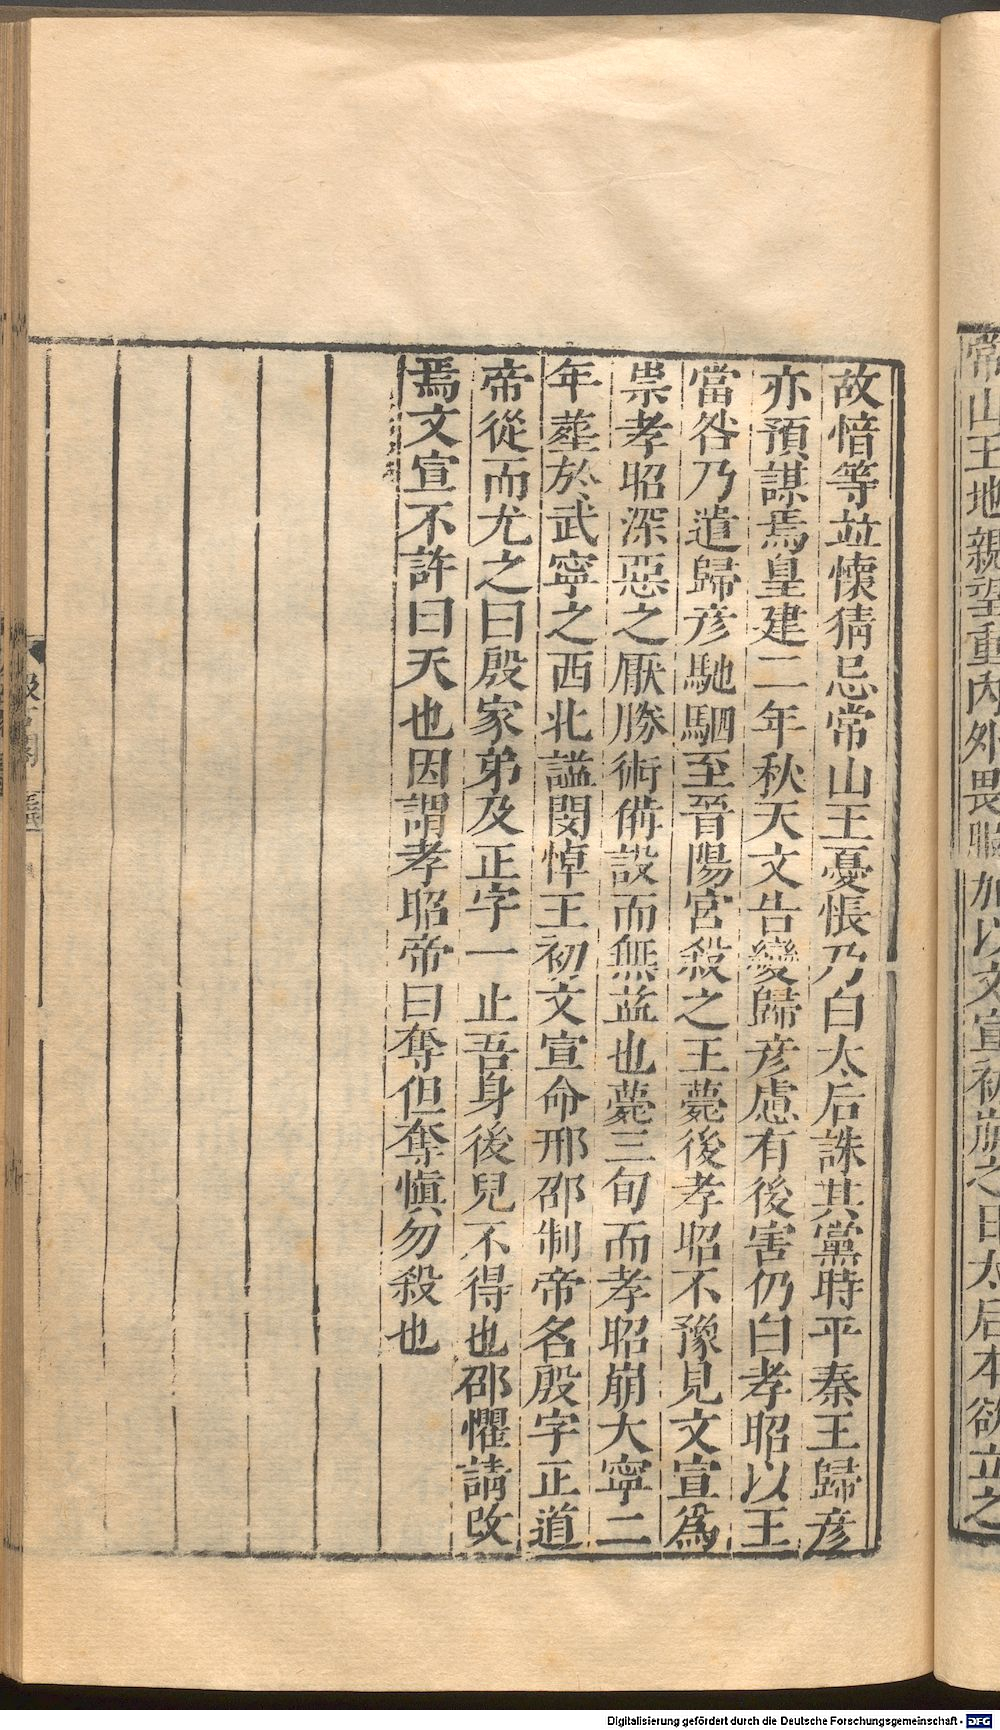 常山王地親望重內外畏服加以文宣初崩之日太后本欲立之
故愔等竝懷猜忌常山王憂悵乃白太后誅其黨時平秦王歸彥
亦預謀焉皇建二年秋天文告變歸彥慮有後害仍白孝昭以王
當咎乃遣歸彥馳駟至晉陽宮殺之王薨後孝昭不豫見文宣爲
祟孝昭深惡之厭勝術備設而無益也薨三旬而孝昭崩大寧二
年葬於武寧之西北謚閔悼王初文宣命邢邵制帝名殷字正道
帝從而尤之曰殷家弟及正字一止吾身後兒不得也邵懼請改
焉文宣不許曰天也因謂孝昭帝曰奪但奪愼勿殺也
Digitalisierung gefördert durch die Deutsche Forschungsgemeinschaft - DFG